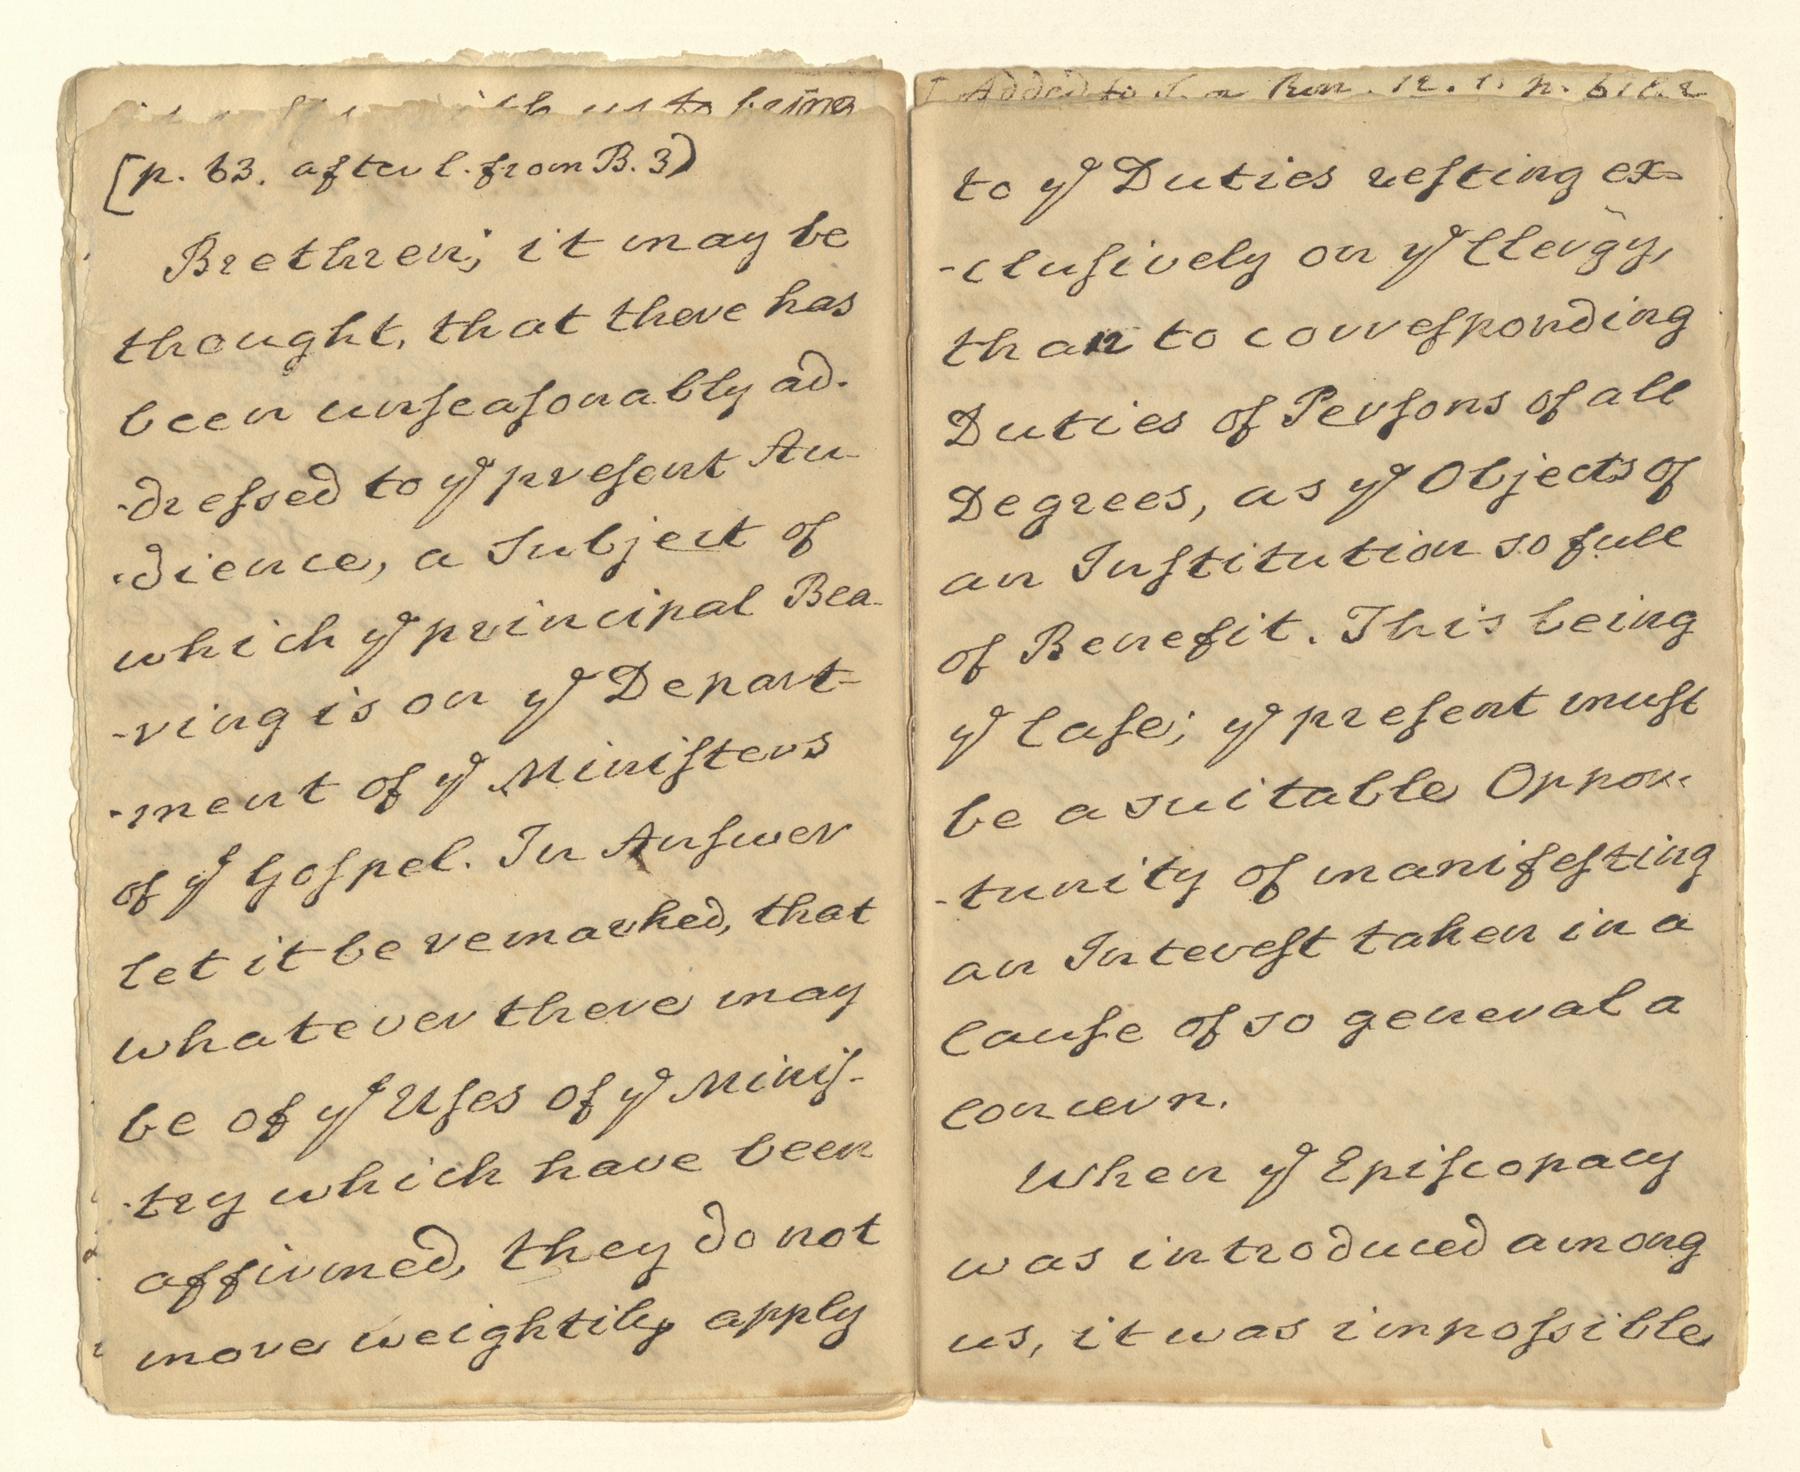 us to being
[p. 63. after l. from B. 3)
Brethren; it may be
thought, that there has
been unſeaſonably ad-
-dreſsed to yͤ preſent Au-
-dience, a Subject of
which yͤ principal Bea-
-ring is on yͤ Depart-
-ment of yͤ Miniſters
of yͤ Goſpel. In Anſwer
let it be remarked, that
whatever there may
be of yͤ Uſes of yͤ Miniſ-
-try which have been
affirmed, they do not
more weightily apply
Added to S. on Rom. 12. 1. p.
to yͤ Duties reſting ex-
-cluſively on yͤ Clergy,
than to correſponding
Duties of Perſons of all
Degrees, as yͤ Objects of
an Inſtitution so full
of Benefit. This being
yͤ Caſe; yͤ preſent muſt
be a suitable Oppor-
-tunity of manifeſting
an Intereſt taken in a
Cauſe of so general a
concern.
When yͤ Epiſcopacy
was introduced among
us, it was impoſsible